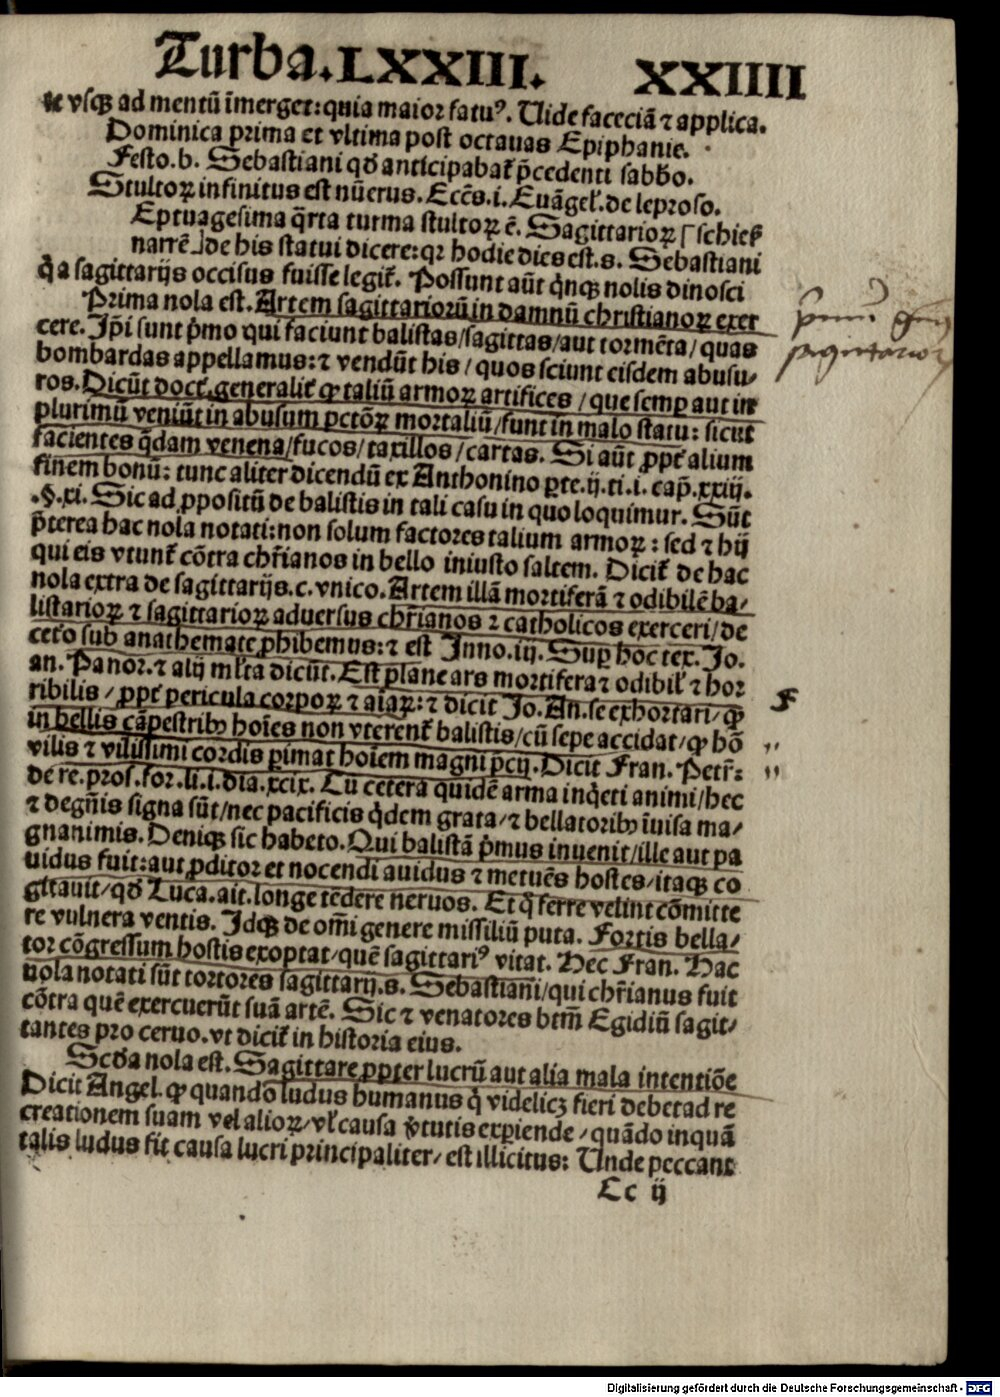 Turba.LXXIII. XXIIII
vsqꝫ ad mentū īmerget: quia maior fatuꝰ. Uide faceciā ⁊ applica.
Dominica prima et vltima post octauas Epiphanie.
Festo.b. Sebastiani qđ anticipabat᷑ p̄cedenti sabb̄o.
Stultoꝝ infinitus est nūerus. Ecc̄s.i. Euāgeł.de leproso.
Eptuagesima q̄rta turma stultoꝝ ē. Sagittarioꝝ ⌈schieß
narrē⌋de his statui dicere: qꝛ hodie dies est.s. Sebastiani
q̇ a sagittarijs occisus fuisse legit᷑. Possunt aūt q̇nqꝫ nolis dinosci
Prima nola est. Artem sagittarioꝝ in damnū christianoꝝ exer
cere. Jp̄i sunt p̄mo qui faciunt balistas/sagittas/aut tormēta/quas
bombardas appellamus: ⁊ vendūt his/quos sciunt eisdem abusu⸗
ros. Dicūt doct.generalit᷑ ꝙ taliū armoꝝ artifices/que semꝑ aut in
plurimū veniūt in abusum pctōꝝ mortaliū/sunt in malo statu: sicut
facientes q̄dam venena/fucos/taxillos/cartas. Si aūt ꝓpt᷑ alium
finem bonū: tunc aliter dicendū ex Anthonino ꝑte.ij.ti.i. cap̄.xxiij.
.§.xi. Sic ad ꝓpositū de balistis in tali casu in quo loquimur. Sūt
p̄terea hac nola notati: non solum factores talium armoꝝ: sed ⁊ hij
qui eis vtunt᷑ cōtra chr̄ianos in bello iniusto saltem. Dicit᷑ de hac
nola extra de sagittarijs.c.vnico. Artem illā mortiferā ⁊ odibilē ba⸗
listarioꝝ ⁊ sagittarioꝝ aduersus chr̄ianos ⁊ catholicos exerceri/de
cet̄o sub anathemate ꝓhibemus: ⁊ est Inno.iij. Suꝑ hoc tex. Jo.
an. Panor.⁊ alij młta dicūt. Est plane ars mortifera ⁊ odibił ⁊ hor
ribilis/ꝓpt᷑ pericula corpoꝝ ⁊ aīaꝝ: ⁊ dicit Jo. An. se exhortari/ꝙ
in bellis cāpestribꝰ hoīes non vterent᷑ balistis/cū sepe accidat/ꝙ hō
vilis ⁊ vilissimi cordis ꝑimat hoīem magni p̄cij. Dicit Fran. Petr̄:
de re.pros.for.li.i.dia.xcix. Cū cetera quidē arma inq̇eti animi/hec
⁊ degn̄is signa sūt/nec pacificis q̇dem grata/⁊ bellatoribꝰ īuisa ma⸗
gnanimis. Deniqꝫ sic habeto. Qui balistā p̄mus inuenit/ille aut pa
uidus fuit: aut ꝓditor et nocendi auidus ⁊ metuēs hostes/itaqꝫ co
gitauit/qđ Luca.ait.longe tēdere neruos. Et q̄ ferre velint cōmitte
re vulnera ventis. Idqꝫ de om̄i genere missiliū puta. Fortis bella⸗
tor cōgressum hostis exoptat/quē sagittariꝰ vitat. Hec Fran. Hac
nola notati sūt tortores sagittarij.s. Sebastiani/qui chr̄ianus fuit
cōtra quē exercuerūt suā artē. Sic ⁊ venatores btm̄ Egidiū sagit⸗
tantes pro ceruo.vt dicit᷑ in historia eius.
Scđa nola est. Sagittare ꝓpter lucrū aut alia mala intentiōe
Dicit Angel.ꝙ quando ludus humanus q̇ videlicꝫ fieri debet ad re
creationem suam vel alioꝝ/vł causa v̓tutis exꝑiende/quādo inquā
talis ludus fit causa lucri principaliter/est illicitus: Unde peccant
Cc ij
sagittarioꝝ
Digitalisierung gefördert durch die Deutsche Forschungsgemeinschaft - DFG